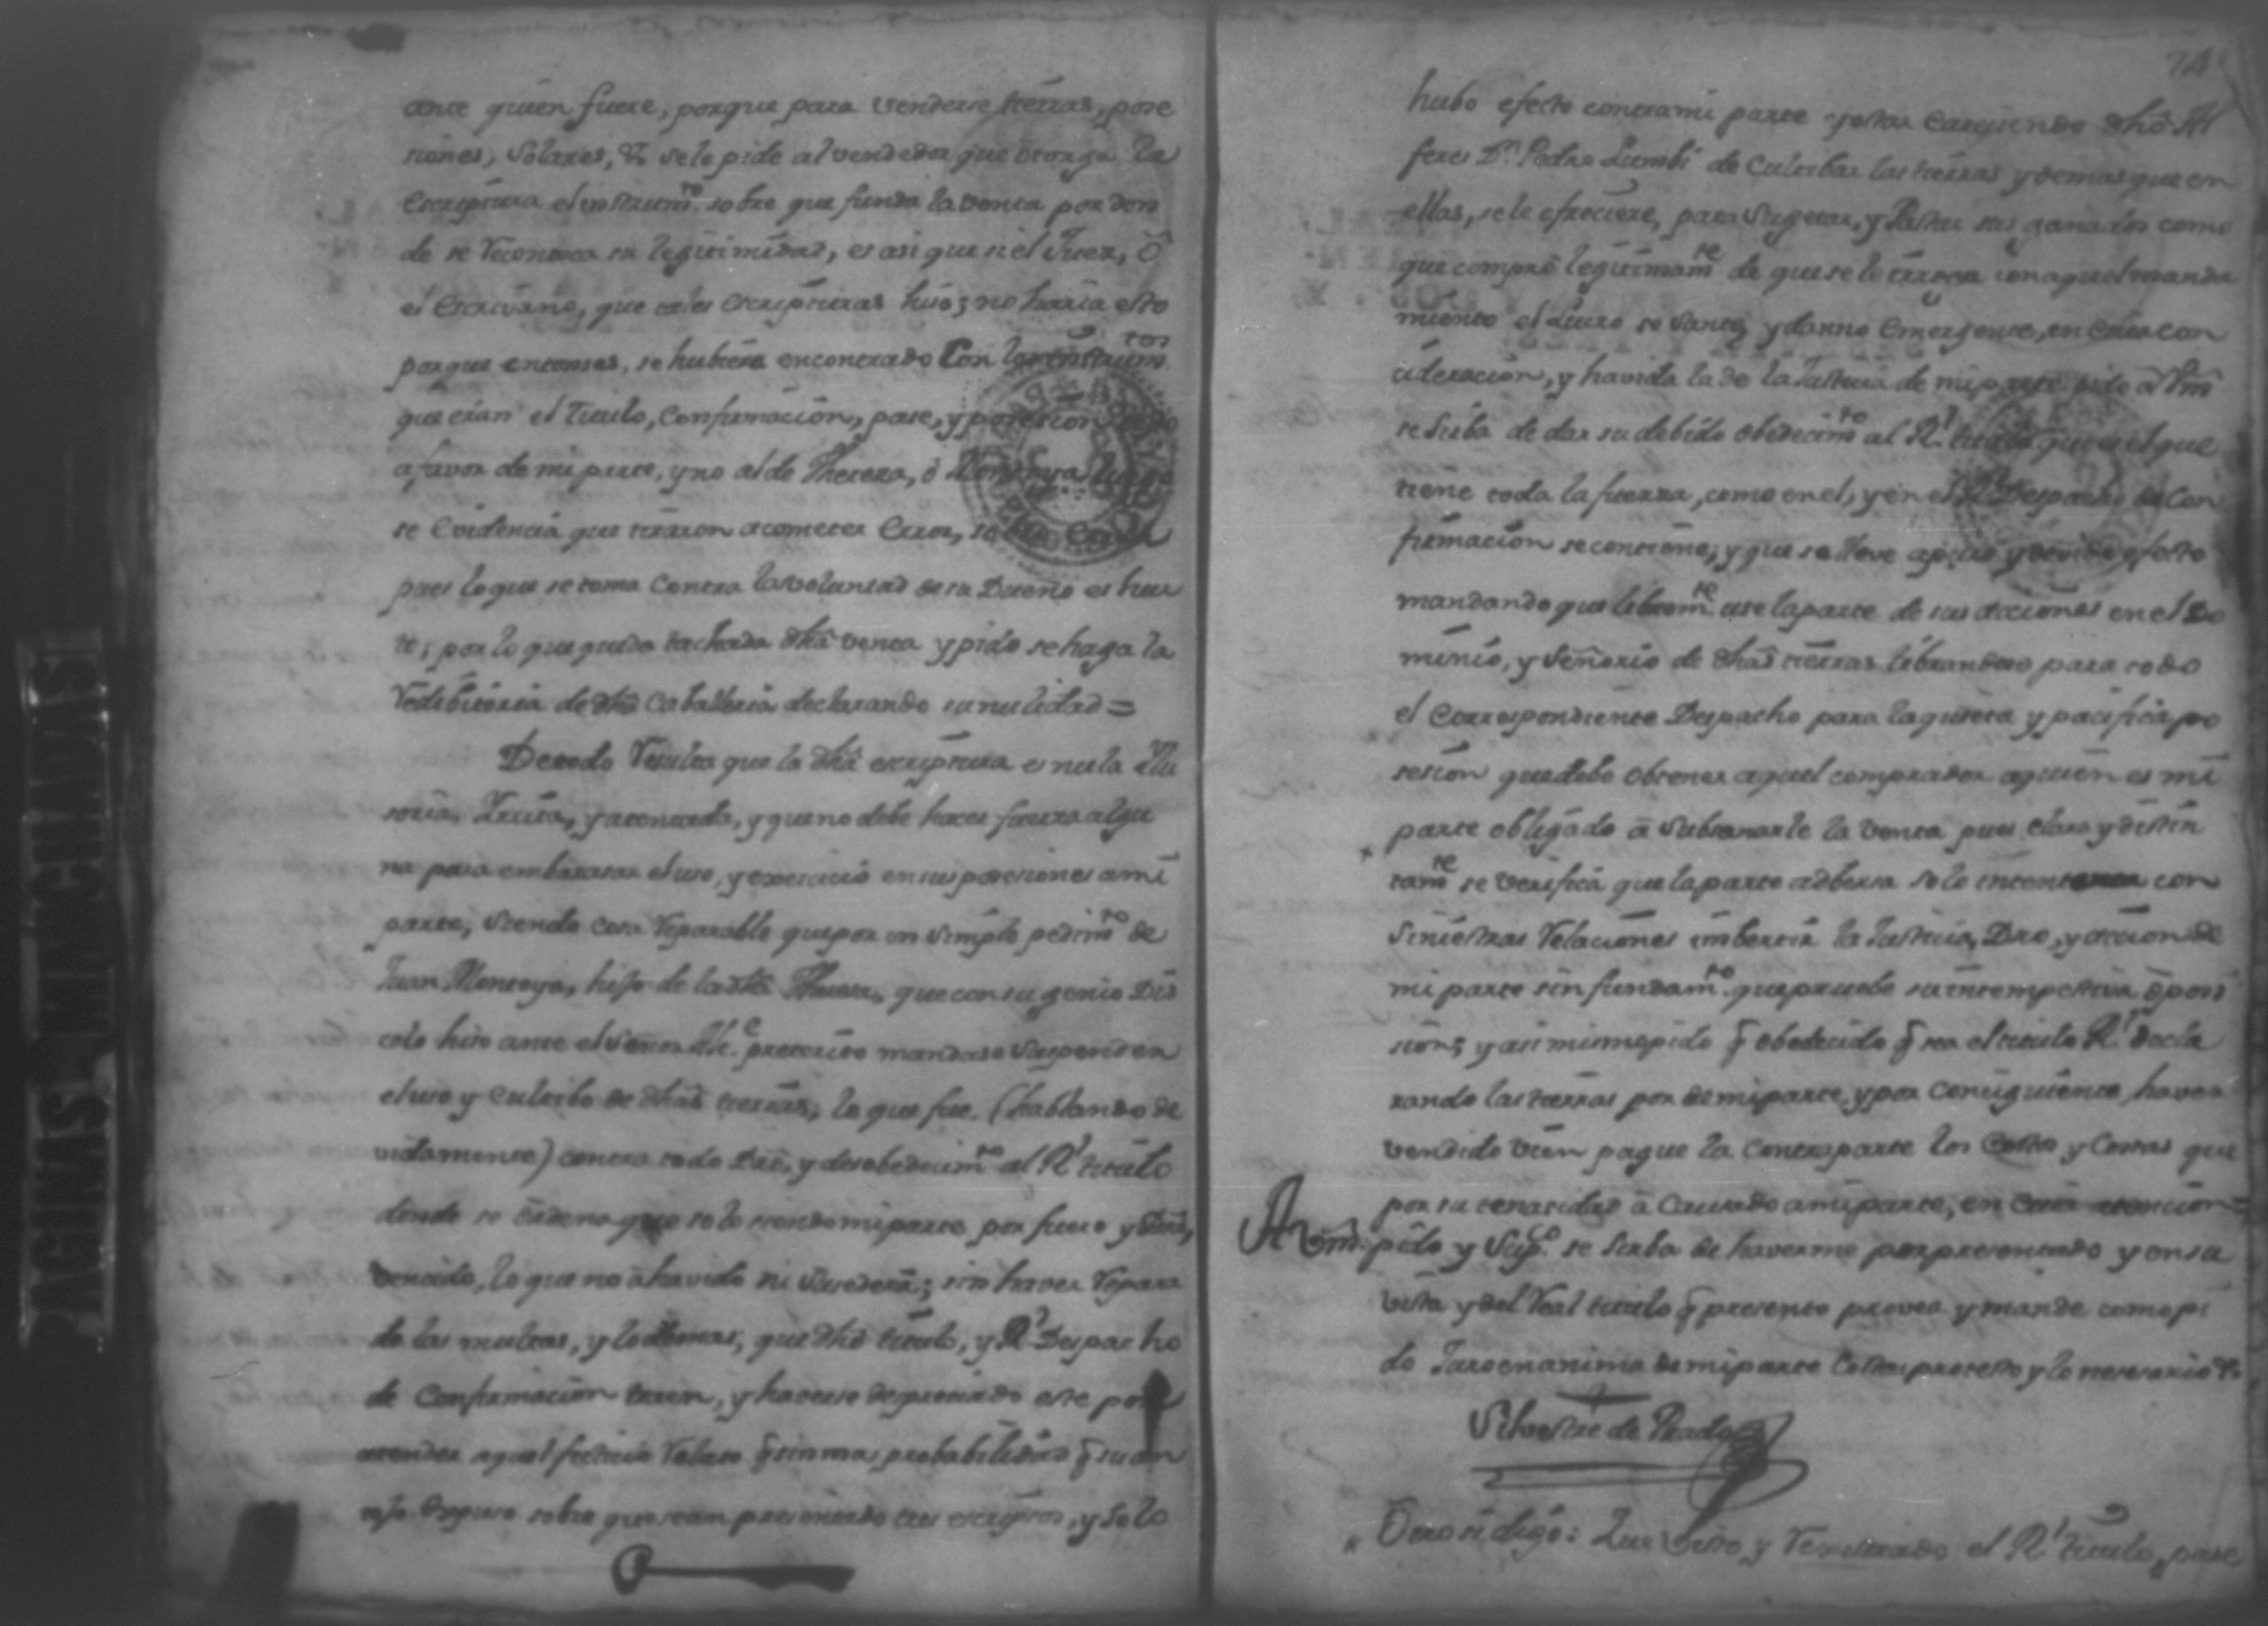 ante quien fuere, porque para venderse tierras, pose
siones, Solares, &c. se le pide al vendedor que otorga la
Escriptura el instrum.to sobre que funda la venta por don
de se reconosca su legitimidad, es asi que si el Juez, ô
el Escrivano, que tales escripturas hiso; no haria esto
porque entonses, se hubiera encontrado Con los instrum.tos
que eran el Titulo, Confirmacion, pase, y posecion
a favor de mi parte, y no al de Thereza, ô Montoya
se evidencia que tiraron a cometer Error,
pues lo que se toma Contra la voluntad de su Dueño es hur
to; por lo que queda tachada dhã venta y pido se haga la
Redibitoria de dhã Caballeria declarando su nulidad =
De todo Resulta que la dhã escriptura es nula Ilu
soria, Irrita, y atentada, y que no debe hacer fuerza algu
na para embarasar el uso, y exercicio en sus poseciones a mi
parte, siendo cosa reparable que por un simple pedim.to de
Juan Montoya, hijo de la dhã Theresa, que con su genio Dis
colo hiso ante el Señor Alc.e preterito mandase suspender
el uso y cultibo de dhãs tierras; lo que fue (hablando de
vidamente) contra todo Dro, y desobedecim.to al R.l titulo
donde se ordena que solo siendo mi parte por fuero y Dro,
vencido, lo que no â havido ni sucederâ; sin haver repara
do las multas, y lo demas, que dhô titulo, y R.l Despacho
de Confirmacion traen, y haverse despreciado este por
atender aquel ficticio relato q̃ sin mas probabilidad q̃ su an
tojo expuso sobre que sean presentado tres escriptos, y solo
74
hubo efecto contra mi parte y estar careciendo dhô Al
feres D.n Pedro Lumbi de Cultibar las tierras y demas que en
ellas, se le ofreciere, para Sugetar, y Pastar sus ganados como
que comprô legitimam.te de que se le con aquel manda
miento el Lucro y danno Emergente, en cuia con
cideracion, y havida la de la Justicia de mi parte pido â Vm̃
se sirba de dar su debido obedecim.to al R.l titulo que es el que
tiene toda la fuerza, como en el, y en el R.l Despacho de Con
firmacion se contiene; y que se lleve a puro y devido efecto
mandando que librem.te use la parte de sus acciones en el Do
minio, y Señorio de dhãs tierras librandose para todo
el Correspondiente Despacho para la quieta y pacifica po
sesion que debe obtener aquel comprador a quien es mi
parte obligado â Subsanarle la venta pues clara y distin
tam.te se verifica que la parte adbersa solo intenta con
Siniestras Relaciones imbertir la Justicia, Dro, y accion de
mi parte sin fundam.to que pruebe su intempestiva oposi
sion; y asi mismo pido q̃ obedecido q̃ sea el titulo R.l decla
rando las tierras por de mi parte, y por consiguiente, haver
vendido bien pague la Contraparte los Costos y Costas que
por su tenacidad â Causado a mi parte, en cuia atencion =
A Vm̃. pido y Sup.co se sirba de haverme por presentado y en su
vista y del Real titulo q̃ presento provea y mande como pi
do Juro en anima de mi parte Costas protesto y lo nesesario &c.
Silvestre de Prado
Otro si digo: Que visto, y Venerado el R.l titulo, pase
PAGINAS MANCHADAS